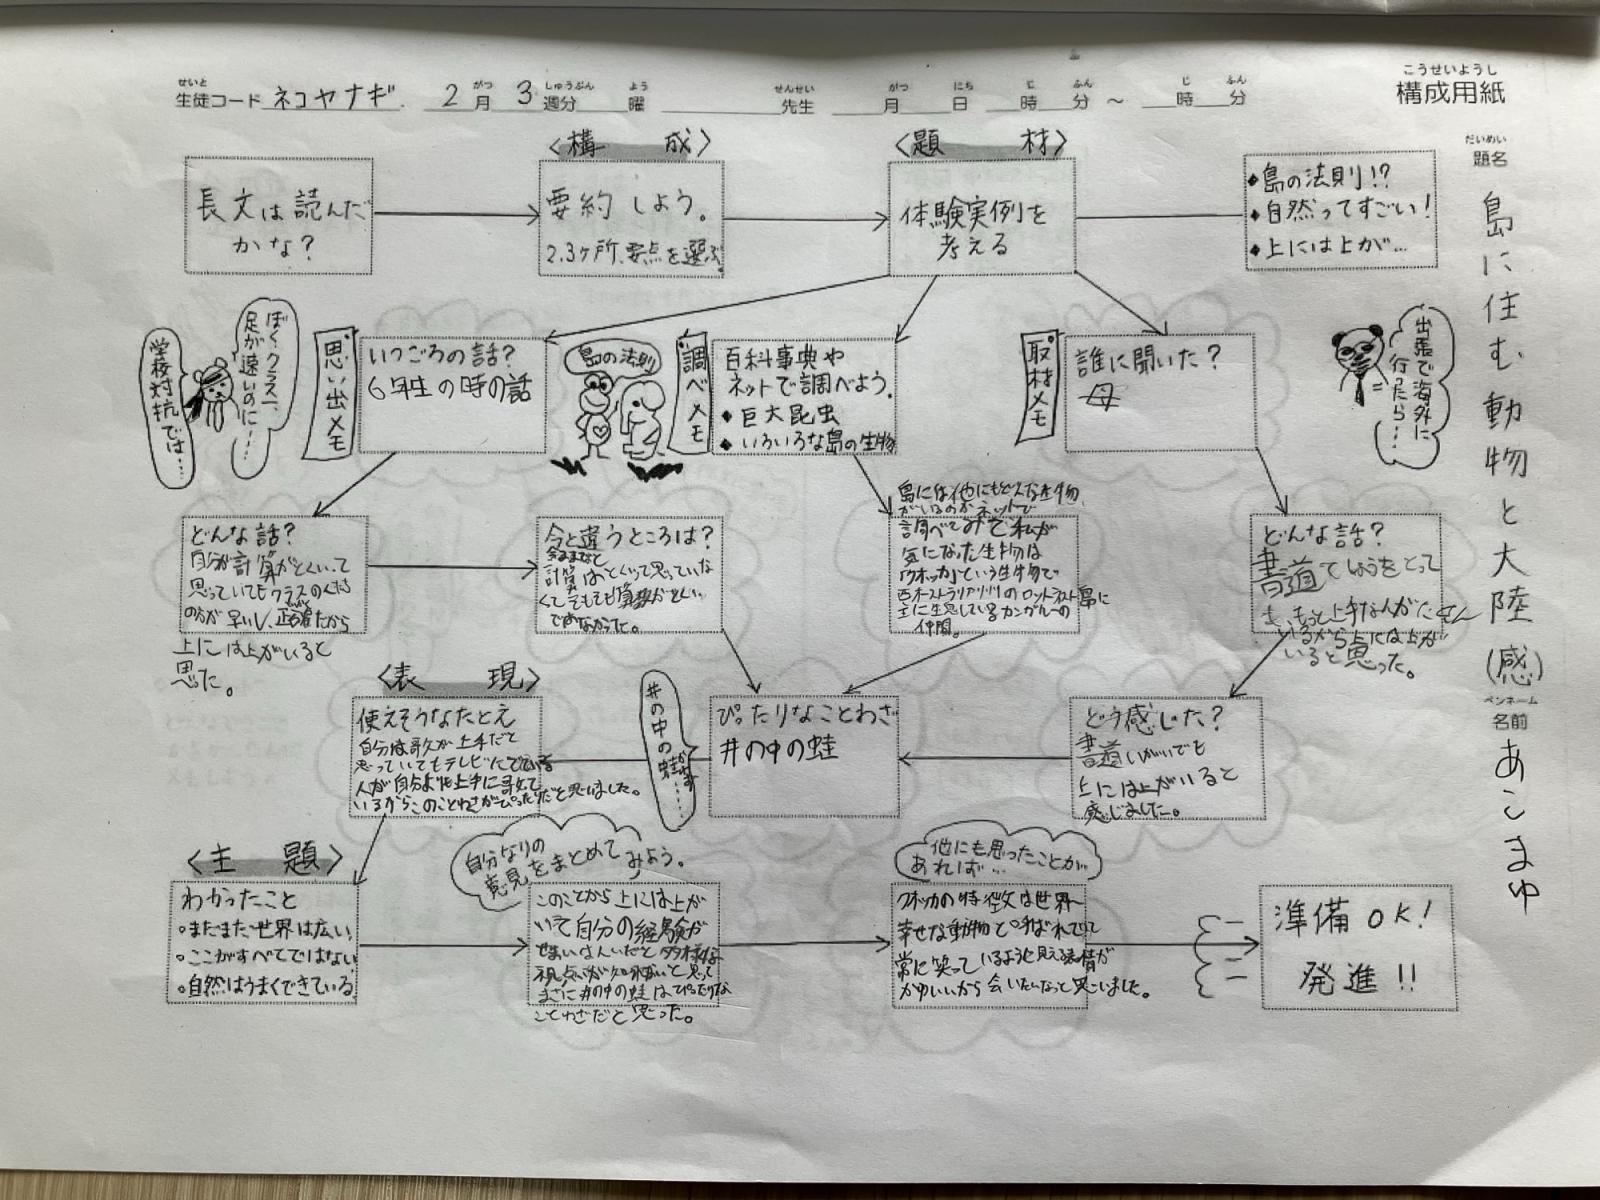 構成用紙
こうせいようし
せいと がつ しゅうぶん よう せんせい がつ にち じ ふん じ ふん
生徒コード ネコヤナギ. 2月 3週分 曜 先生 月 日 時 分 ~ 時 分
だいめい
題名
島に住む動物と大陸(感)
ペンネーム
名前
あこまゆ
長文は読んだ
かな?
〈構 成〉
要約しよう。
2.3ヶ所、要点を選ぶ
〈題 材〉
体験実例を
考える
◆島の法則!?
◆自然ってすごい!
◆上には上が…
ぼく、クラス一、
足が速いのに……
学校対抗では…
思い出メモ
いつごろの話?
6年生の時の話
島の法則
調べメモ
百科事典や
ネットで調べよう。
◆巨大昆虫
◆いろいろな島の生物
取材メモ
誰に聞いた?
母
出張で海外に
行ったら…
どんな話?
自分が計算がとくいって
思っていてもクラスのくもん
の方が早いし、正確だから
上には上がいると
思った。
今と違うところは?
計算はとくいって思っていな
くてそもそも算数がとくい
ではなかった。
島には他にもどんな生物
がいるのかネットで
調べてみて私が
気になった生物は
「クオッカ」という生き物で
西オーストラリア州のロットネスト島に
主に生息しているカンガルーの
仲間。
どんな話?
書道でしょうをとって
も、もっと上手な人がたくさん
いるから上には上が
いると思った。
〈表 現〉
使えそうなたとえ
自分は歌が上手だと
思っていてもテレビにでている
人が自分よりも上手に歌えて
いるからこのことわざがぴったりだと思いました。
井の中の蛙
ぴったりなことわざ
井の中の蛙
どう感じた?
書道いがいでも
上には上がいると
感じました。
〈主 題〉
わかったこと
・まだまだ世界は広い
・ここがすべてではない
・自然はうまくできている
自分なりの
意見をまとめてみよう。
このことから上には上が
いて自分の経験が
せまいはんいだと多様な
視点が知れないと思って
まさに井の中の蛙はぴったりな
ことわざだと思った。
他にも思ったことが
あれば…
クオッカの特徴は世界一
幸せな動物と呼ばれてて
常に笑っているように見える表情が
かわいいから会いたいなっと思いました。
準備OK!
発進!!